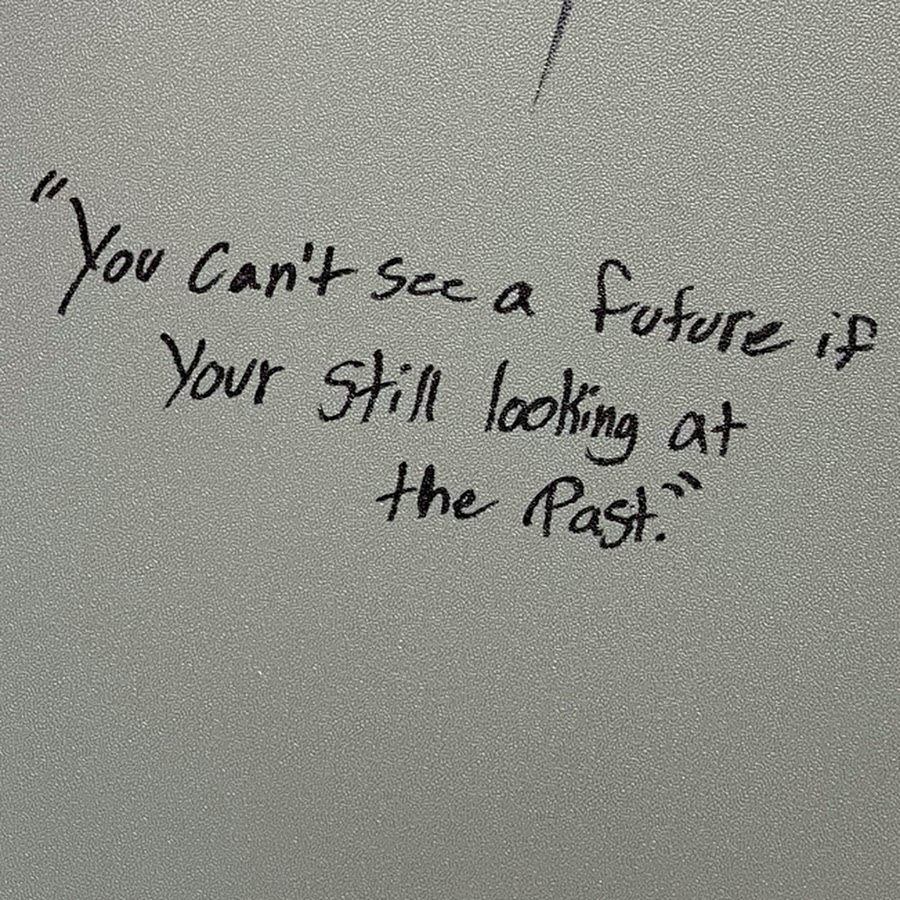 "You Can't see a future if
Your still looking at
the Past."